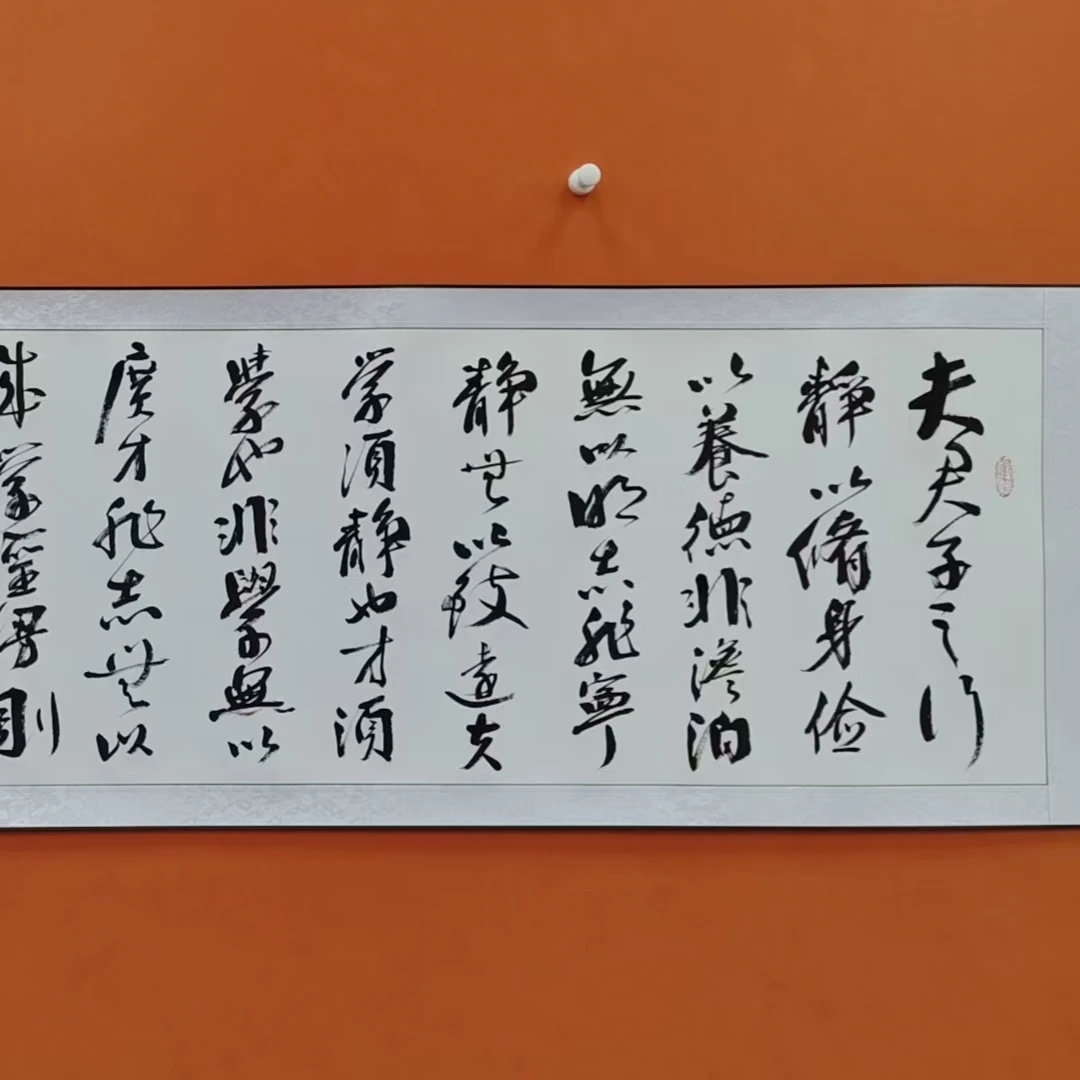 夫君子之行
靜以脩身俭
以養德非澹泊
無以明志非寧
静無以致遠夫
学須静也才須
學也非學無以
廣才非志無以
成學